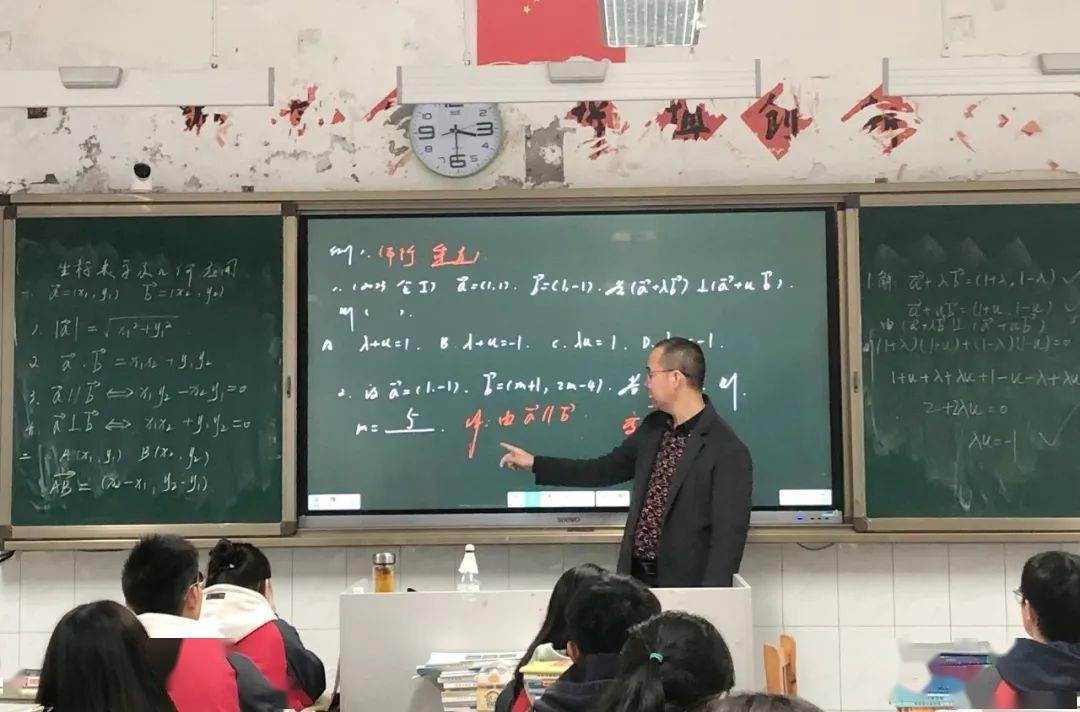 12
2
9
3
6
创
坐标表示及几何应用
一. a⃗=(x₁, y₁) b⃗=(x₂, y₂)
1. |a⃗|=√x₁²+y₁²
2. a⃗·b⃗=x₁x₂+y₁y₂
3. a⃗∥b⃗⇔x₁y₂-x₂y₁=0
4. a⃗⊥b⃗⇔x₁x₂+y₁y₂=0
二. A(x₁, y₁) B(x₂, y₂)
AB⃗=(x₂-x₁, y₂-y₁)
例1. 平行 垂直
a⃗=(1,1). b⃗=(1,-1). 若(a⃗+λb⃗)⊥(a⃗+ub⃗).
则( ).
A λ+u=1. B. λ+u=-1. C. λu=1. D. -1.
2. 设a⃗=(1,-1). b⃗=(m+1, 2m-4). 若 则
m=5. 由a⃗∥b⃗
seewo
1.解: a⃗+λb⃗=(1+λ, 1-λ)
a⃗+ub⃗=(1+u, 1-u)
由(a⃗+λb⃗)⊥(a⃗+ub⃗)
(1+λ)(1+u)+(1-λ)(1-u)=0
1+u+λ+λu+1-u-λ+λu
2+2λu=0
λu=-1